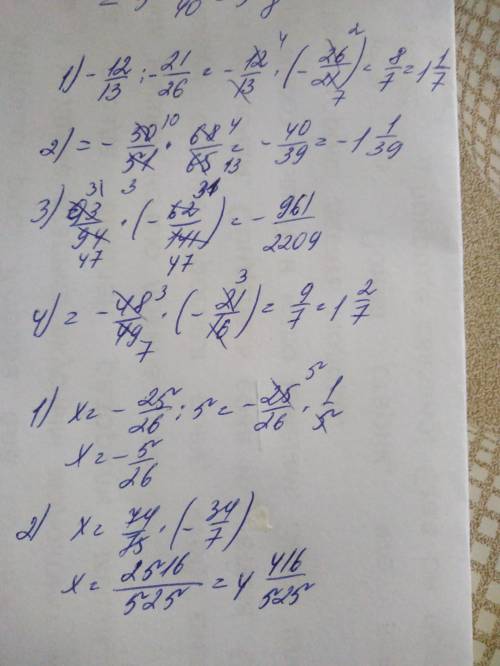 40
1) - 12/13 : - 21/26 = - 12/13 4 · (- 26/21 2 7) = 8/7 = 1 1/7
2) = - 50/51 10 3 · 68/65 4 13 = - 40/39 = -1 1/39
3) 93/94 31 47 · (- 62/141 31 47) = - 961/2209
4) = - 48/49 3 7 · (- 21/16 3) = 9/7 = 1 2/7
1) x = - 25/26 : 5 = - 25/26 5 · 1/5
x = - 5/26
2) x = 74/75 · (- 34/7)
x = 2516/525 = 4 416/525